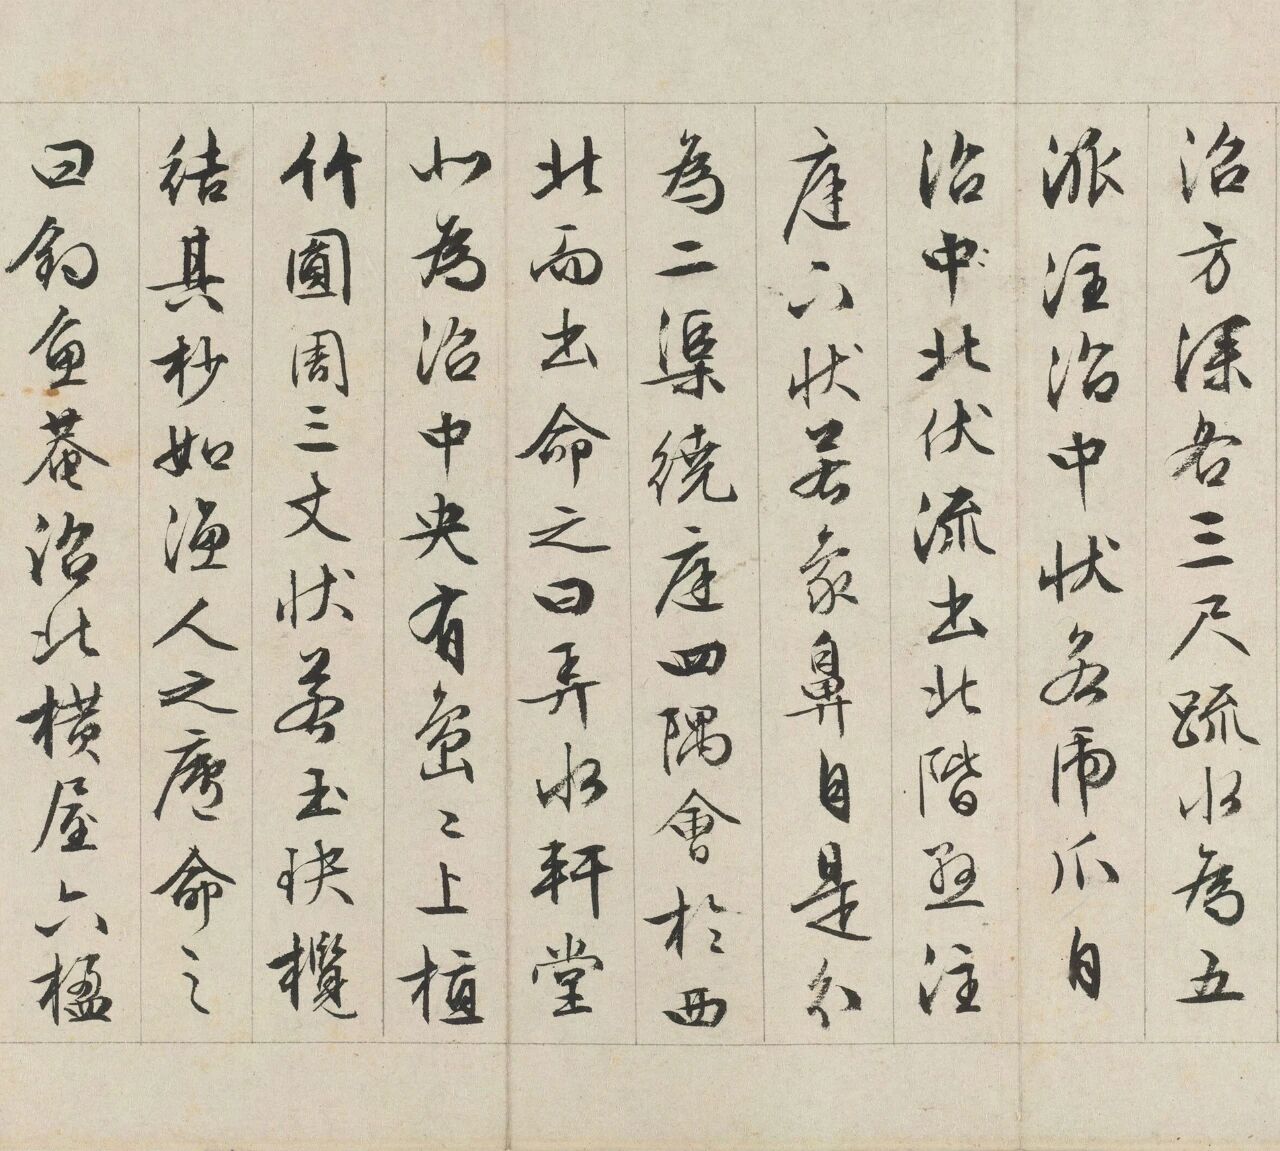 沼方深各三尺疏水為五
派注沼中狀若虎爪自
沼中北伏流出北階懸注
庭下狀若象鼻自是分
為二渠繞庭四隅會於西
北而出命之曰弄水軒堂
北為沼中央有島〻上植
竹圓周三丈狀若玉玦攬
結其杪如漁人之廬命之
曰釣魚菴沼北橫屋六楹